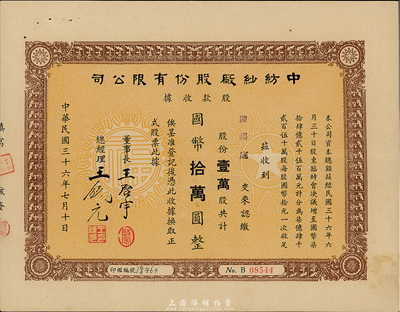 中紡紗廠股份有限公司
股款收據
本公司資本總額茲經民國三十六年六
月三十日股東臨時會決議增至國幣柒
拾肆億貳千伍百萬元計分為柒億肆千
貳百伍十萬股每股國幣拾元一次收足
茲收到
交來認繳
股份壹萬股共計
國幣拾萬圓整
俟呈准登記後憑此收據換取正
式股票此據
董事長 王啓宇
總經理
中華民國三十六年七月十日
印鑑編號
No. B 08544
上海陽明拍賣